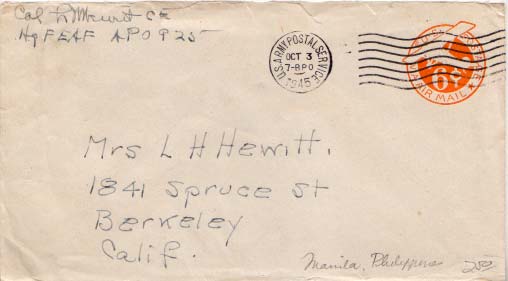 Col L H Hewitt CE
Hq FEAF APO 925
U.S. ARMY POSTAL SERVICE
OCT 3
7-8 PO
1945
6¢
VIA AIR MAIL
Mrs L H Hewitt.
1841 Spruce St
Berkeley
Calif.
Manila, Philippines
250